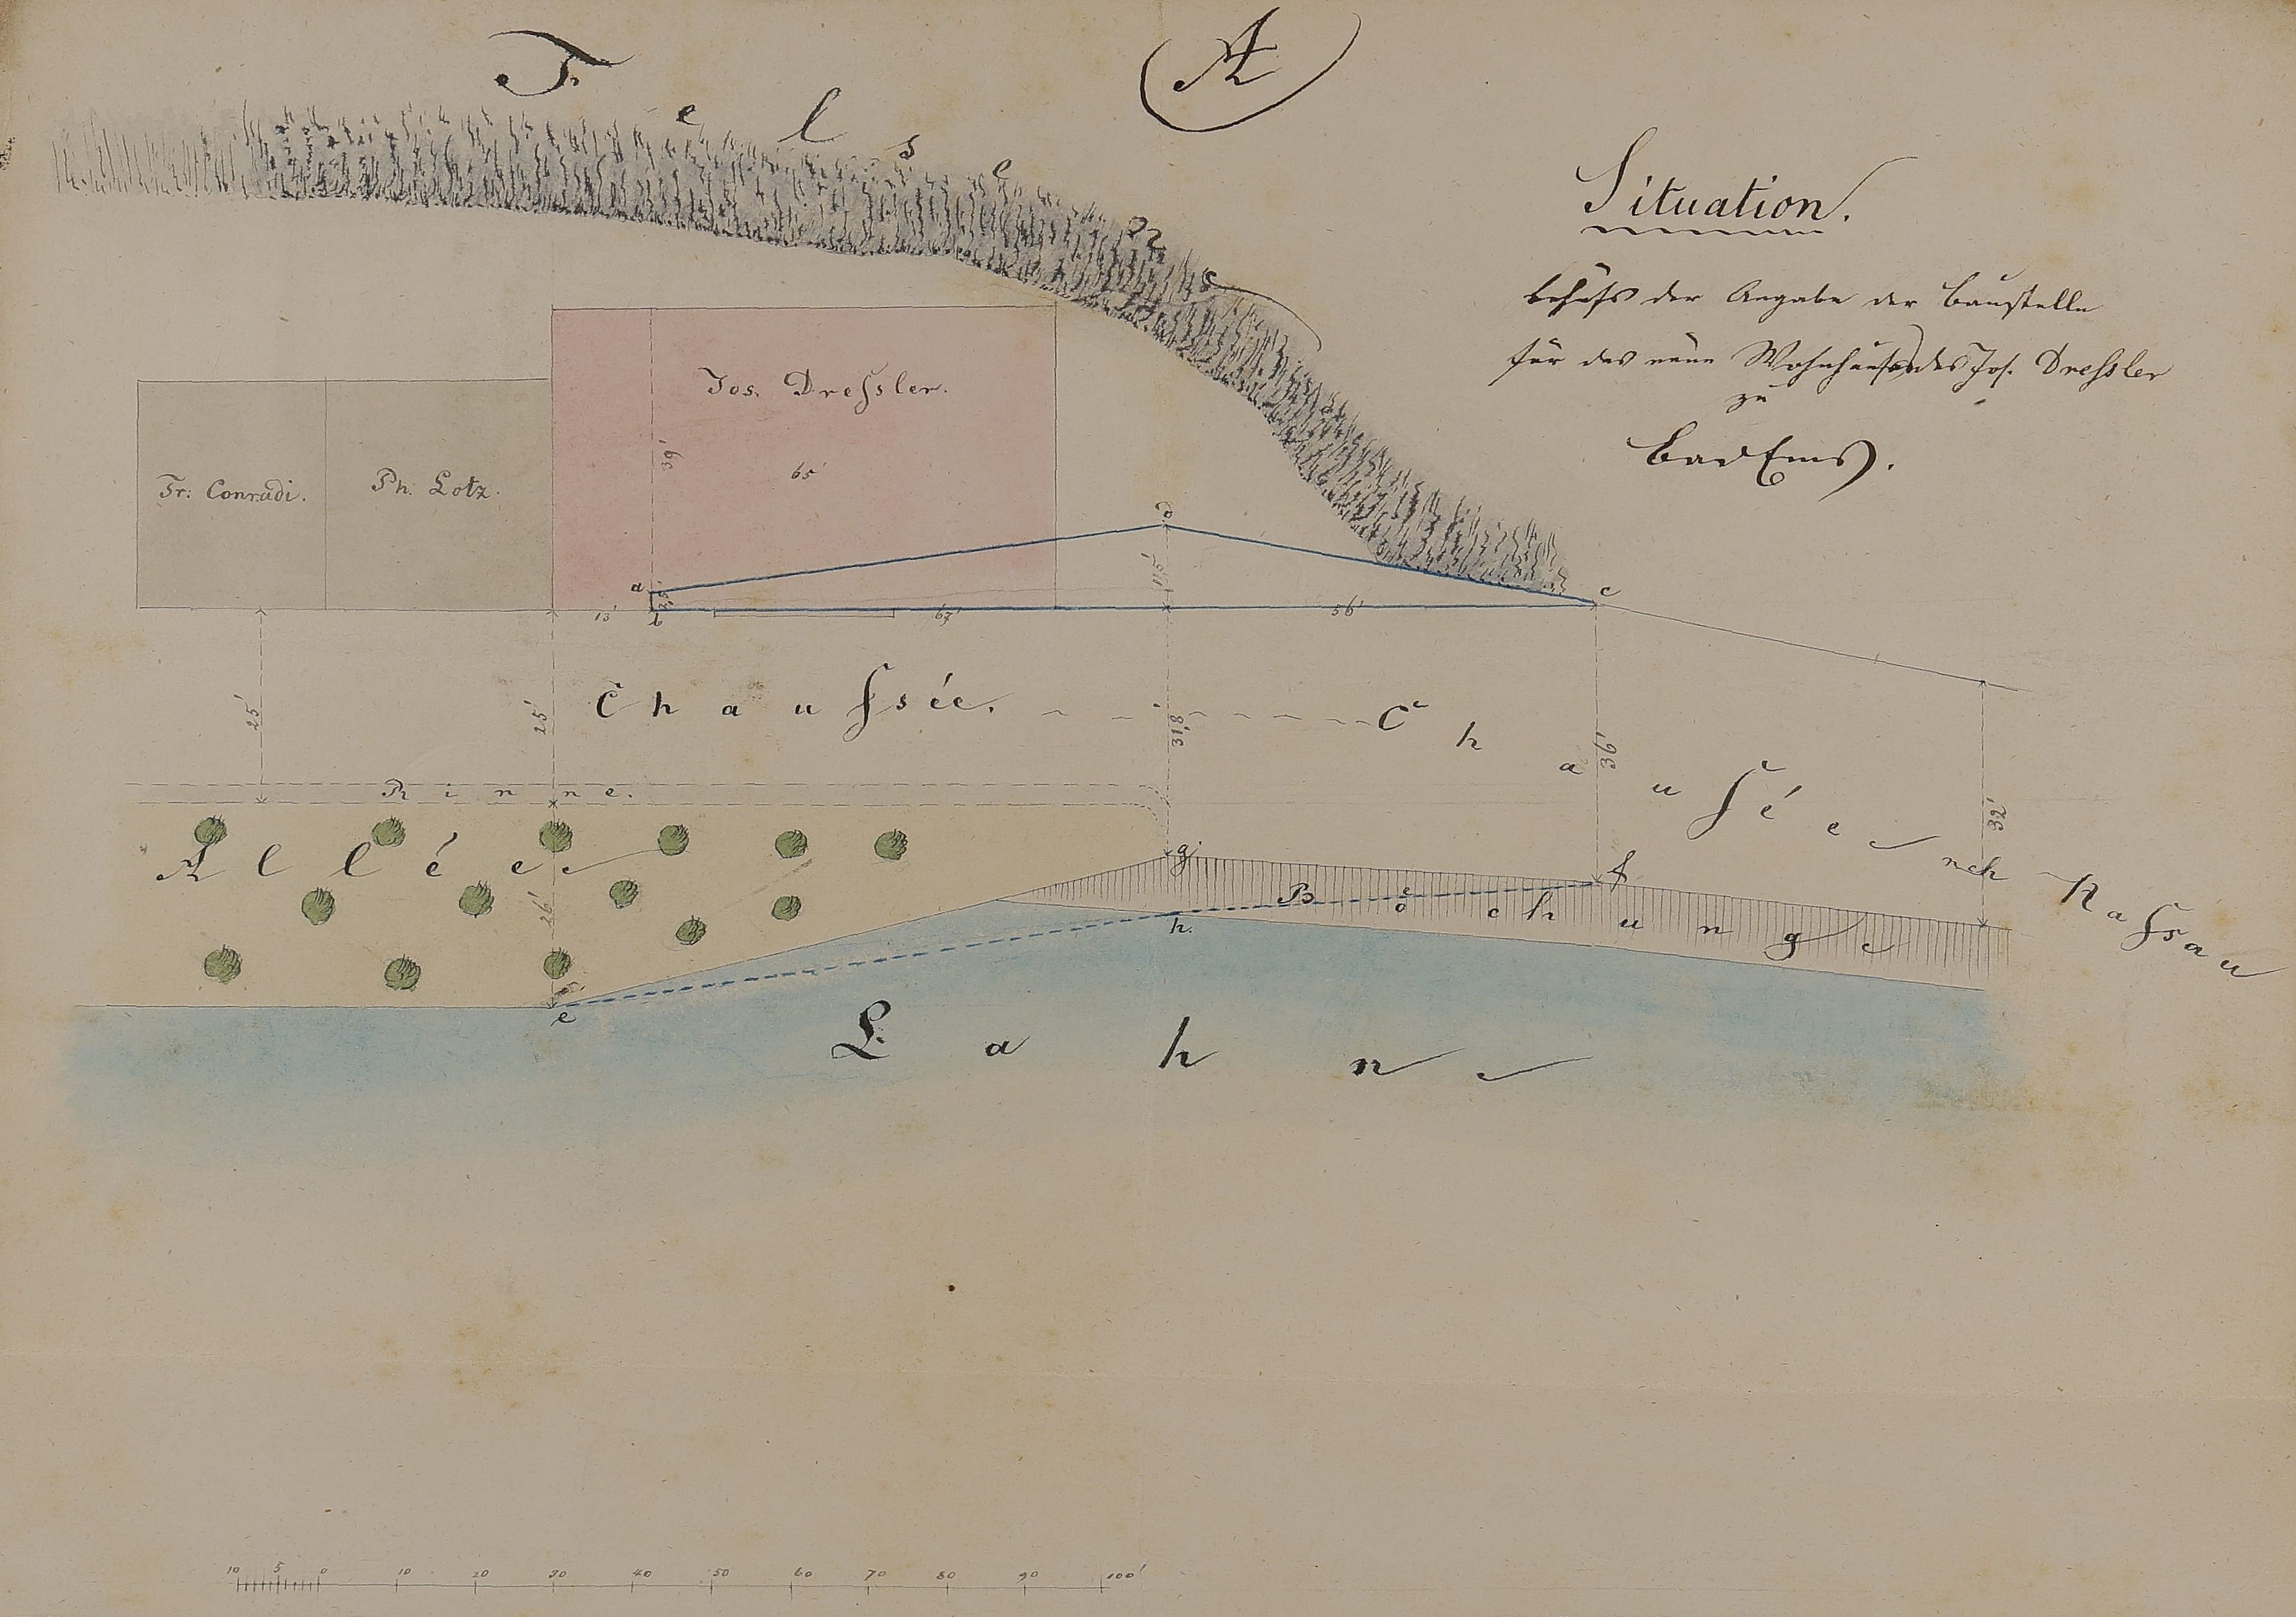 A
Felsen
Situation.
behufs der Angabe der Baustelle
für das neue Wohnhaus des Jos. Dressler
zu
Bad Ems.
Jos. Dressler.
39'
65'
Fr: Conradi.
Ph. Lotz.
a
b
13'
67'
56'
d
c
Chaussée.
Chaussée nach Nassau
25'
25'
31,8
36'
32'
Rinne.
Allée
26'
g
f
Böschung
h.
e
Lahn
10 5 0 10 20 30 40 50 60 70 80 90 100'